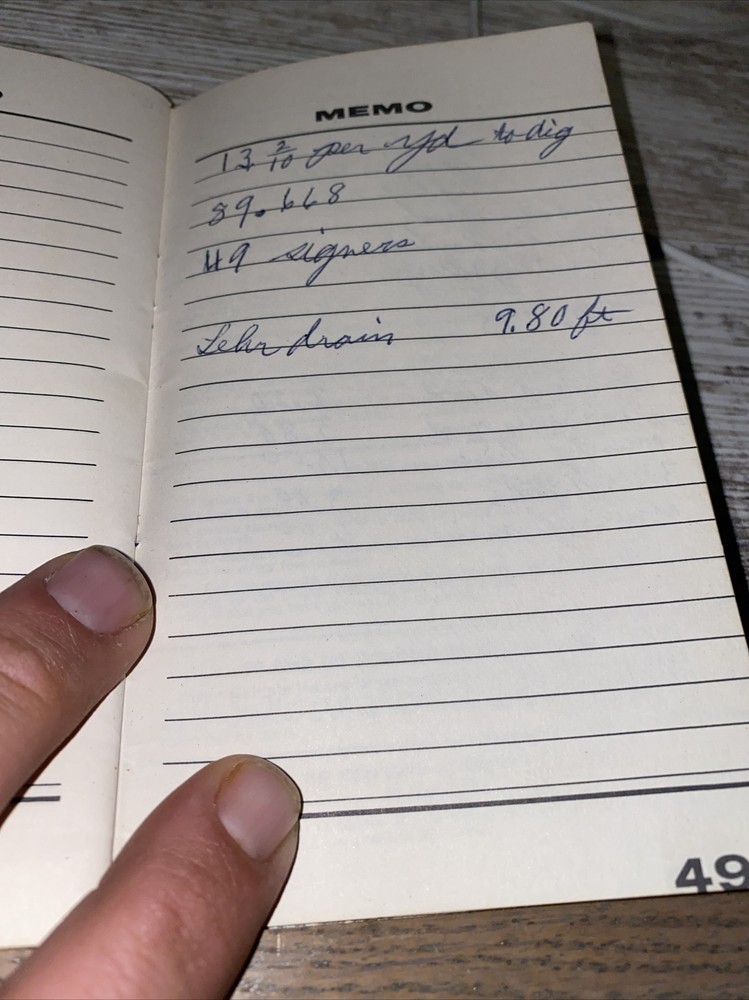 MEMO
13 2/10 per yd to dig
89.668
49 signers
Lehr drain 9.80 ft
49